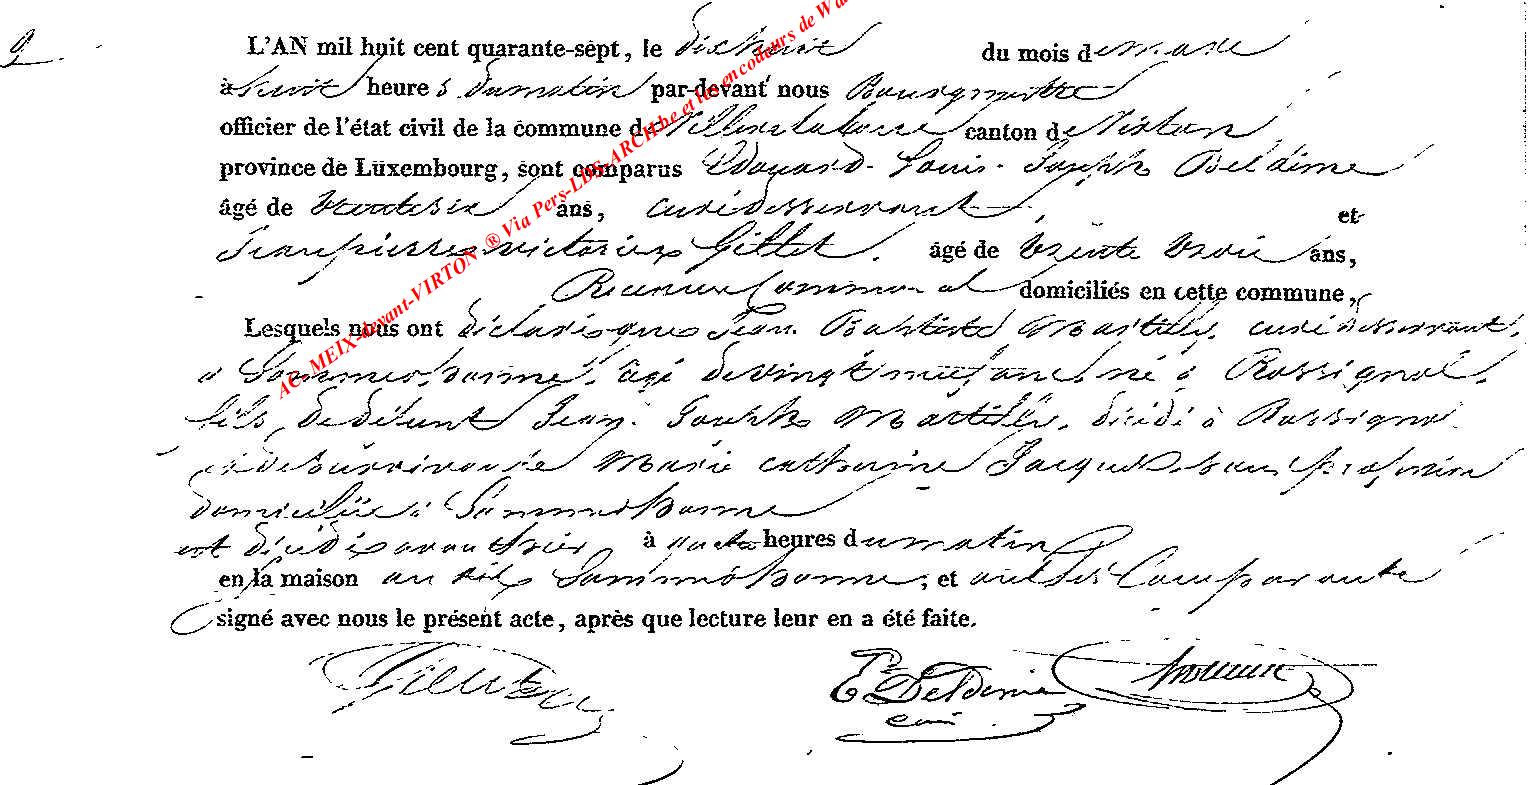 9.
L'AN mil huit cent quarante-sept, le dix huit du mois de mars
à huit heures du matin par-devant nous Bourgmestre
officier de l'état civil de la commune de Villers la loue canton de Virton
province de Luxembourg, sont comparus Edouard Louis Joseph Beldime
âgé de trente six ans, curé desservant et
Jean pierre victorien Gillet. âgé de trente trois ans,
Receveur Communal domiciliés en cette commune,
Lesquels nous ont déclaré que Jean Baptiste curé desservant
à Sommethonne, agé de vingt neuf ans, né à Rossignol,
fils de défunt Jean Joseph décédé à Rossignol
et de survivante Marie catherine Jacques sans profession
domiciliée à Sommethonne
est décédé avant hier à quatre heures du matin
en la maison au dit Sommethonne; et ont les Comparants
signé avec nous le présent acte, après que lecture leur en a été faite.
AC- MEIX-devant-VIRTON ® Via Pers-LDS-ARCH.be et les encodeurs de